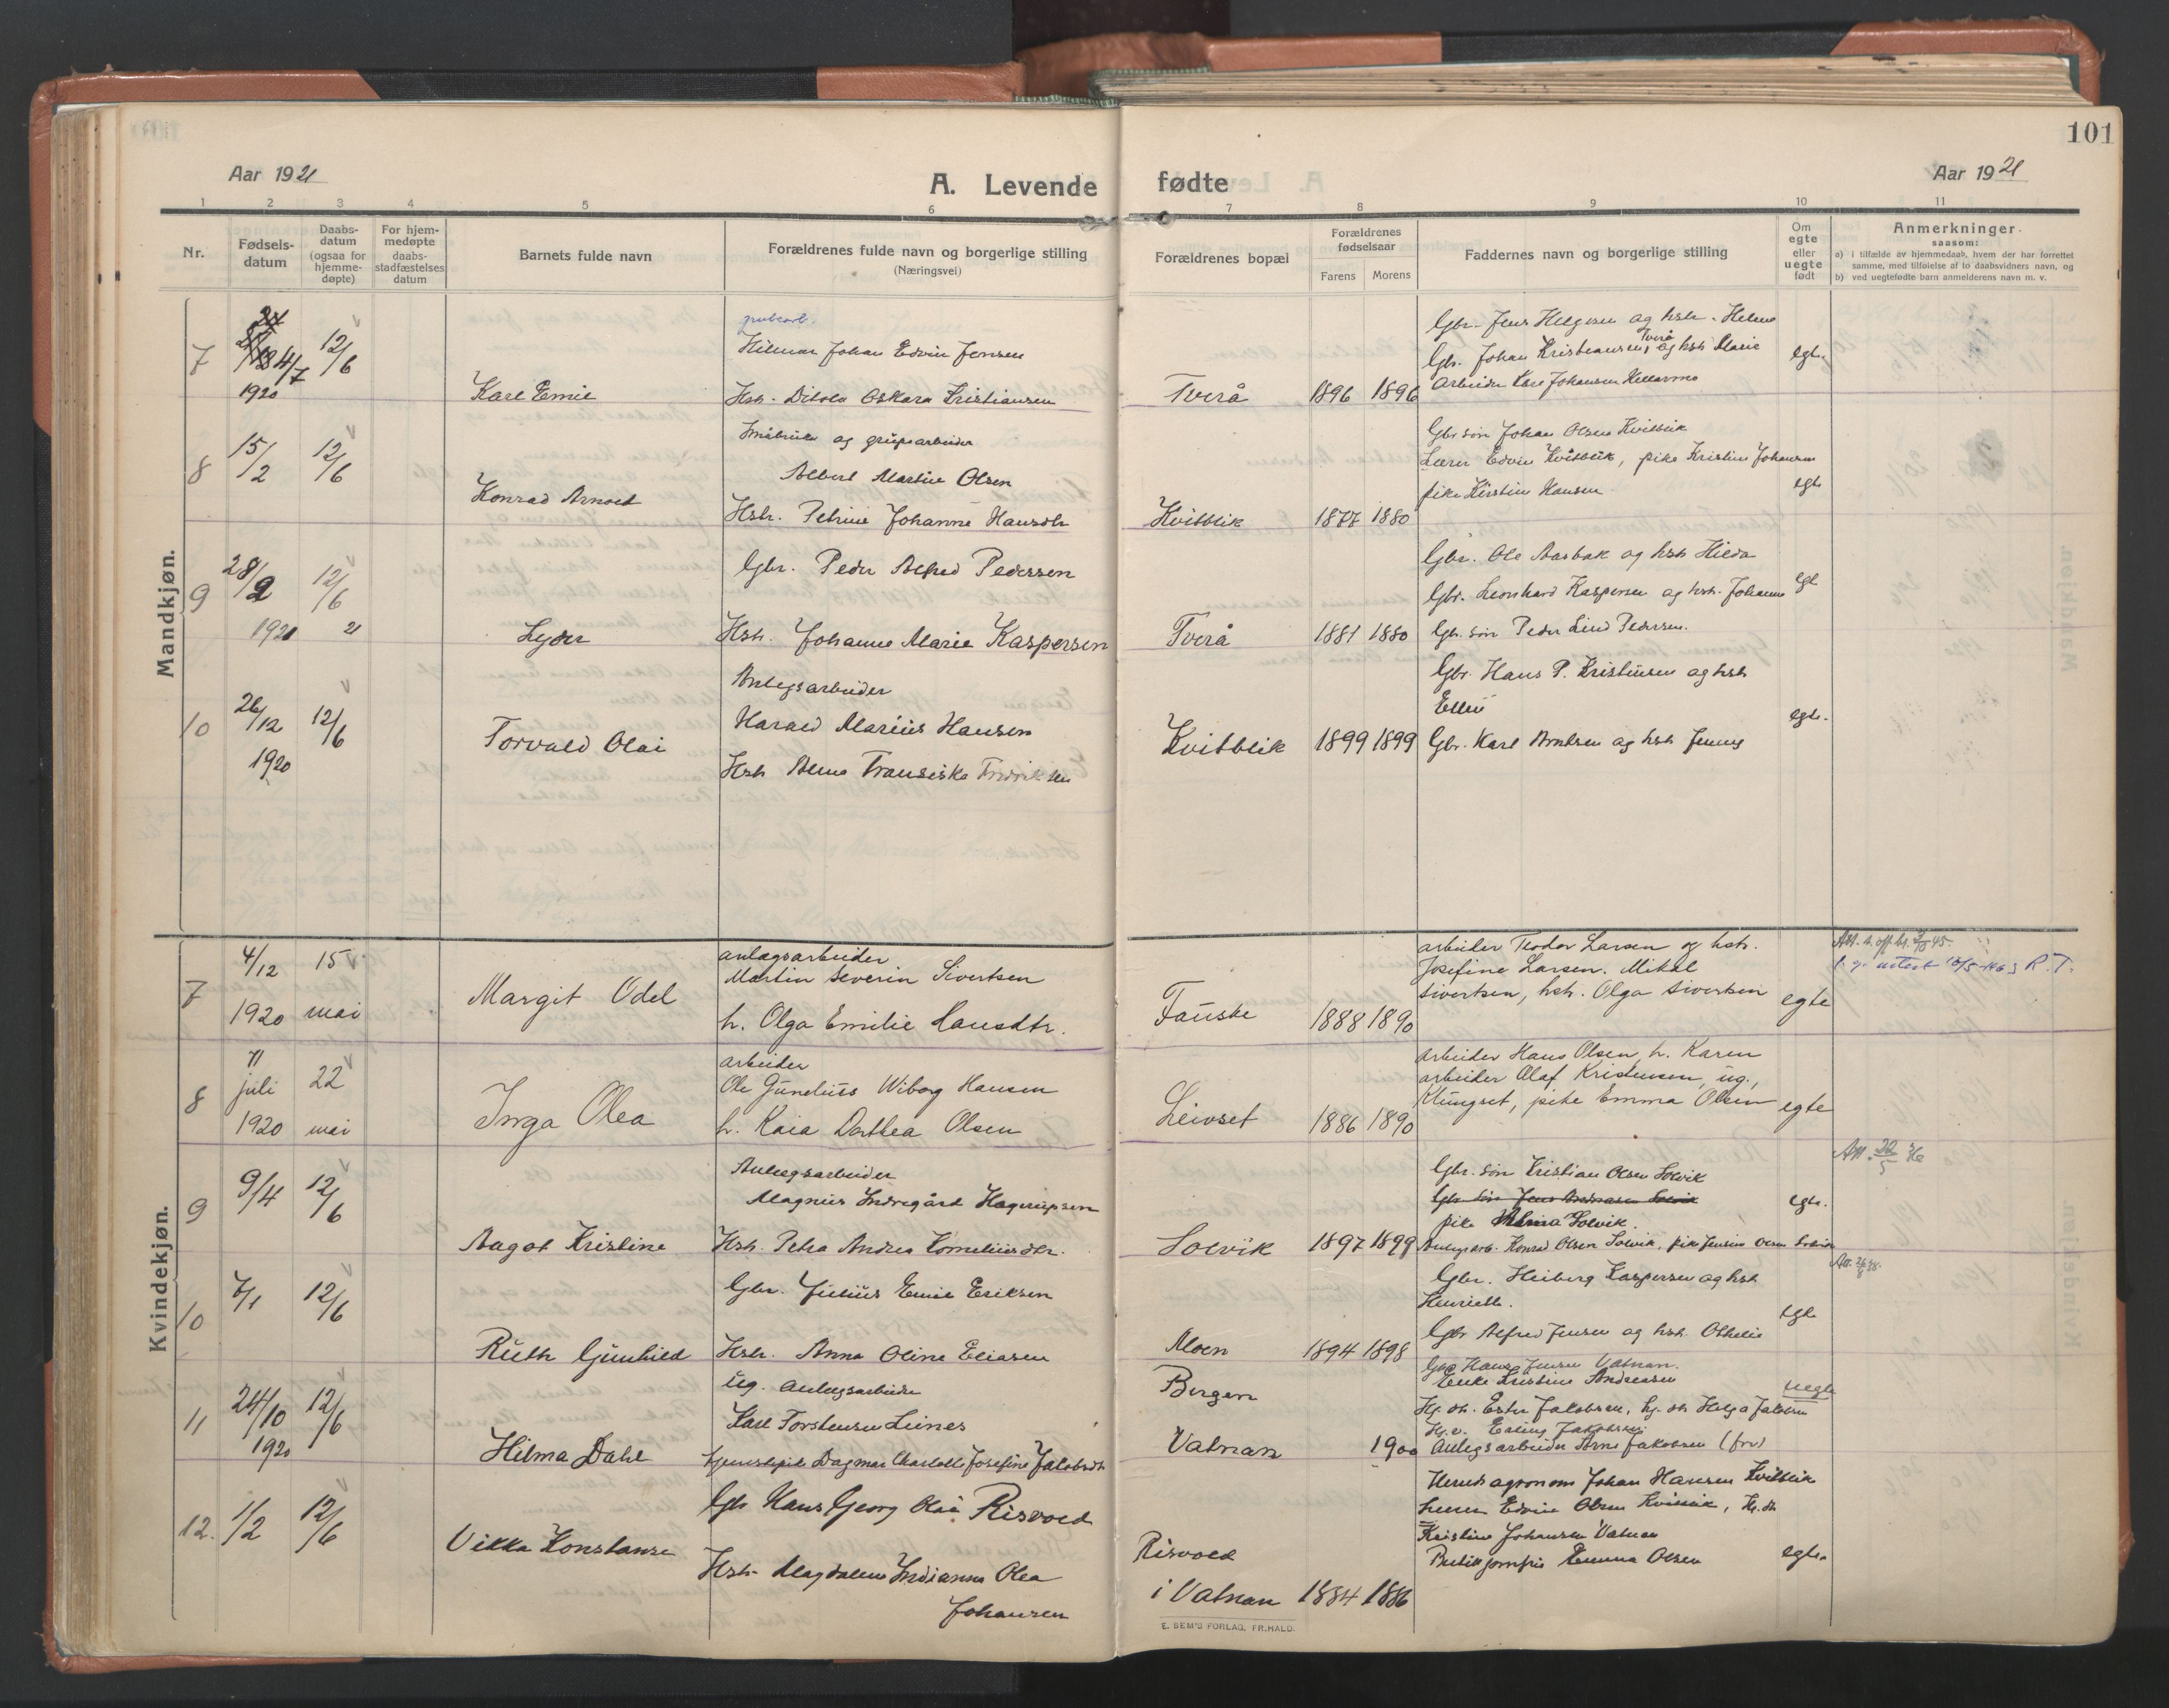 101
Aar 1921
A. Levende fødte
Aar 1921
1 2 3 4 5 6 7 8 9 10 11
Nr.
Fødsels-
datum
Daabs-
datum
(ogsaa for
hjemme-
døpte)
For hjem-
medøpte
daabs-
stadfæstelses
datum
Barnets fulde navn
Forældrenes fulde navn og borgerlige stilling
(Næringsvei)
Forældrenes bopæl
Forældrenes
fødselsaar
Farens Morens
Faddernes navn og borgerlige stilling
Om
egte
eller
uegte
født
Anmerkninger.
saasom:
a) i tilfælde av hjemmedaab, hvem der har forrettet
samme, med tilføielse af to daabsvidners navn, og
b) ved uegtefødte barn anmelderens navn m. v.
Mandkjøn.
7 4/7 1920 12/6
Karl Emil
Hilmar Johan Edvin Jensen
Hstr. Oskara Kristiansen
Tverå 1896 1896
Gbr. Jens Helgesen og hstr. Helene
Gbr. Johan Kristiansen, Tverå og hstr Marie
Arbeider Kåre Johansen
egte
8 15/2 12/6
Konrad Arnolt
Småbruker og grupearbeider
Albert Martin Olsen
Hstr. Petrine Johanne Hansdtr
Kvitblik 1877 1880
Gbr søn Johan Olsen Kvitblik
Lærer Edvin Kvitblik, pike Kristine Johansen
pike Kirstine Hansen
egte
9 28/2 1921 12/6 21
Lyder
Gbr. Peder Alfred Pedersen
Hstr. Johanne Marie Kaspersen
Tverå 1881 1880
Gbr. Ole Aasbak og hstr Hilda
Gbr. Leonhard Kaspersen og hstr. Johanne
Gbr. søn Peder Lind Pedersen.
egte
10 26/12 1920 12/6
Torvald Olai
Anlegsarbeider
Harald Marius Hansen
Hstr Alma Fransiska Fredriksen
Kvitblik 1899 1899
Gbr. Hans P. Kristensen og hstr
Ellen
Gbr. Karl Arntsen og hstr Jenny
egte.
Kvindekjøn.
7 4/12 1920 15 mai
Margit Odel
anlagsarbeider
Martin Severin Sivertsen
h. Olga Emilie Hansdtr.
Fauske 1888 1890
arbeider Teodor Larsen og hstr.
Josefine Larsen. Mikal
Sivertsen, hstr. Olga Sivertsen
egte
R. T.
8 11 juli 1920 22 mai
Inga Olea
arbeider
Ole Gunelius Wiborg Hansen
h. Kaia Dorthea Olsen
Leivset 1886 1890
arbeider Hans Olsen, h. Karen
arbeider Olaf Kristensen, ug.,
Klungset, pike Emma Olsen
egte
9 9/4 12/6
Aagot Kristine
Anlegsarbeider
Magnus Indregård Hagerupsen
Hstr. Petra Andrea Korneliusdtr.
Solvik 1897 1899
Gbr. søn Kristian Olsen Solvik
Gbr søn Jens Andreasen Solvik
pike Alma Solvik.
Anlegsarb. Konrad Olsen Solvik, pike Jensine Olsen Solvik
egte.
Att. 22/5
10 7/1 12/6
Ruth Gunhild
Gbr. Julius Emil Eriksen
Hstr. Anna Oline Eliasen
Moen 1894 1898
Gbr. Heiberg Kaspersen og hstr
Henriette.
Gbr Alfred Jensen og hstr. Othelie
egte
11 24/10 1920 12/6
Hilma Dahl
ug. anlegsarbeider
Karl Torstensen Leines
tjenestepike Dagmar Charlotte Josefine Jakobsdtr
Bergen
Vatnan 1900
Gbr Hans Jensen Vatnan.
Enke Kristine Andreasen
Hg. dtr. Ester Jakobsen, hg. dtr Helga Jakobsen
Hg. s. Erling Jakobsen
Anlegsarbeider Arne Jakobsen (frv)
uegte
12. 1/2 12/6
Vikka Konstanse
Gbr Hans Georg Olai Risvold
Hstr. Magdalene Indianna Olea
Johansen
Risvold
i Vatnan 1884 1886
Herredsagronom Johan Hansen Kvitblik
Lærer Edvin Olsen Kvitblik, Hg. dtr
Kristine Johansen Vatnan
Butikjomfru Emma Olsen
egte.
E. SEM'S FORLAG, FR.HALD.